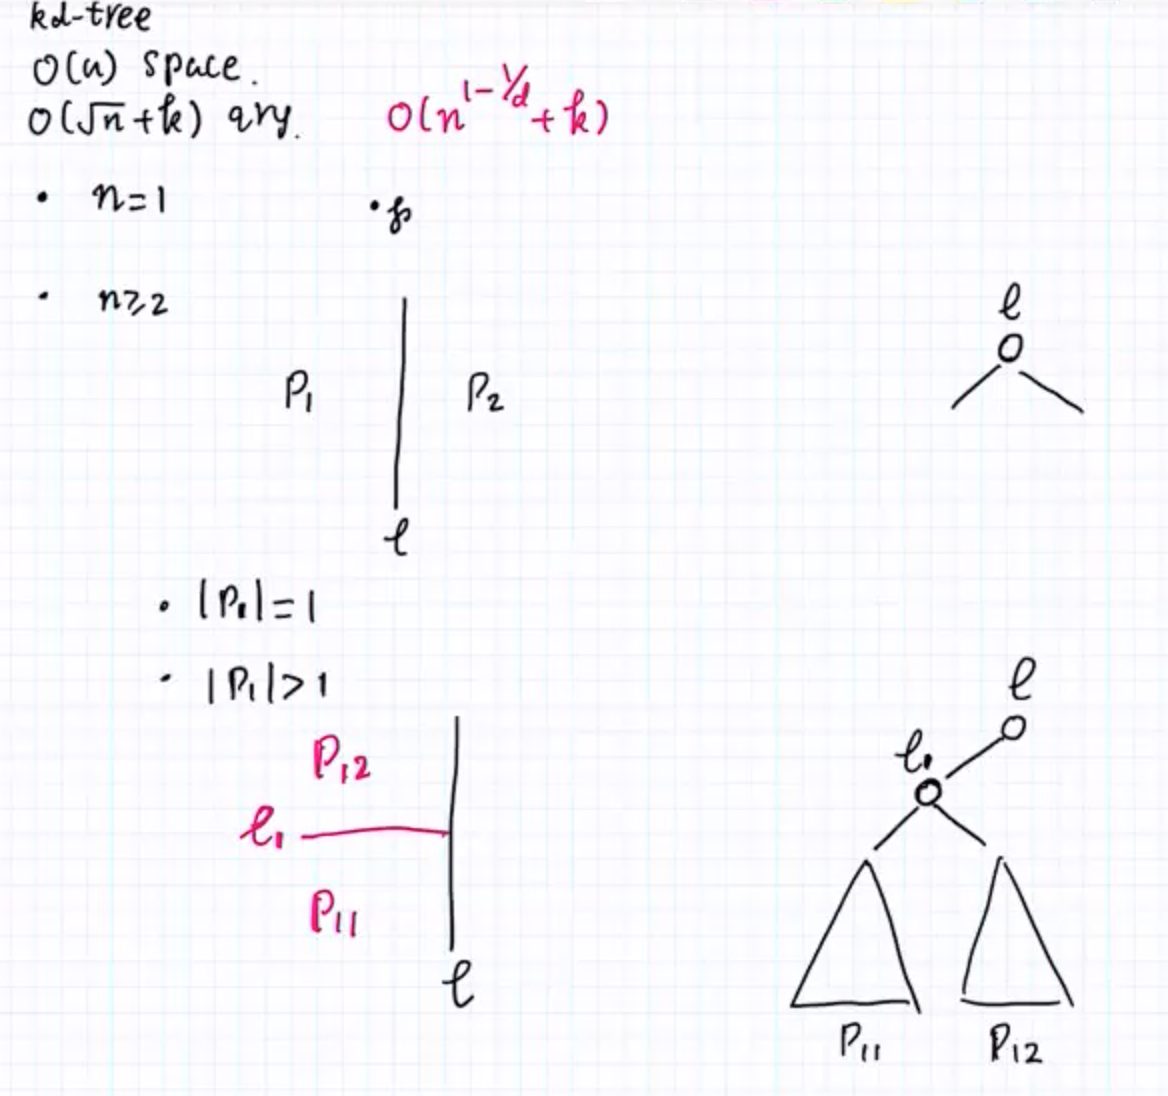 kd-tree
O(n) space.
O(√n+k) qry. O(n^{1-1/d}+k)
• n=1 •p
• n≥2
ℓ
P₁ P₂
ℓ
• |P₁|=1
• |P₁|>1
ℓ
P₁₂ ℓ₁
ℓ₁
P₁₁
ℓ
P₁₁ P₁₂